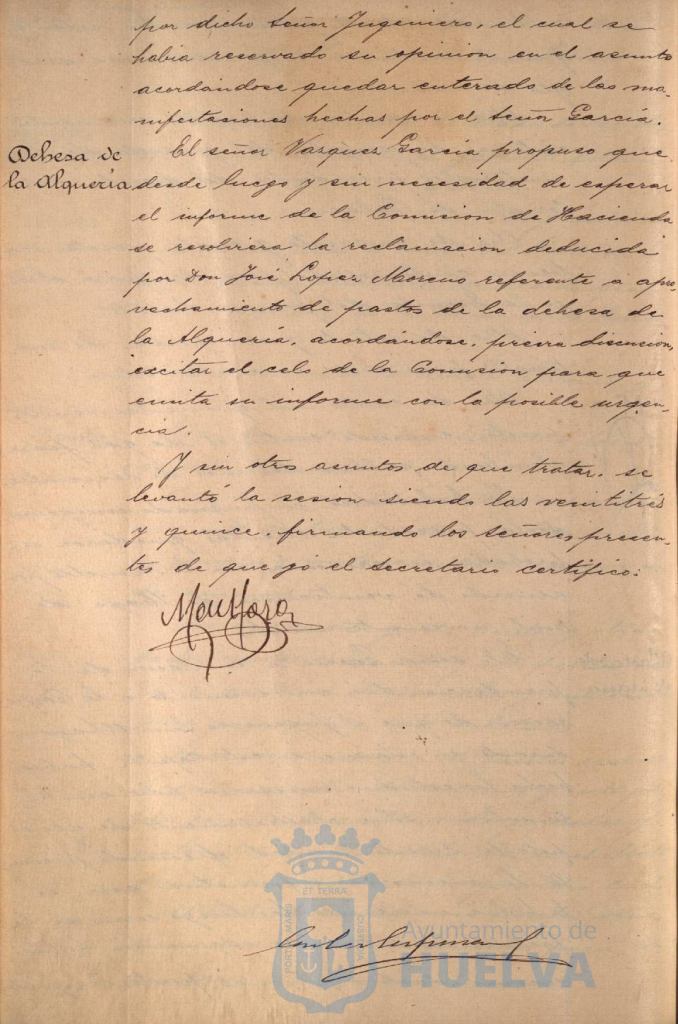 por dicho señor Ingeniero, el cual se
habia reservado su opinion en el asunto
acordándose quedar enterado de las ma-
nifestaciones hechas por el señor García.
Dehesa de
la Alquería
El señor Vazquez García propuso que
desde luego y sin necesidad de esperar
el informe de la Comision de Hacienda
se resolviera la reclamacion deducida
por Don José Lopez Moreno referente a apro-
vechamiento de pastos de la dehesa de
la Alquería, acordándose, previa discusion,
excitar el celo de la Comisión para que
emita su informe con la posible urgen-
cia.
Y sin otros asuntos de que tratar, se
levantó la sesion siendo las veintitrés
y quince, firmando los señores presen-
tes de que yo el secretario certifico:
ET TERRA
PORTUS MARIS
CUSTODIA
Ayuntamiento de
HUELVA